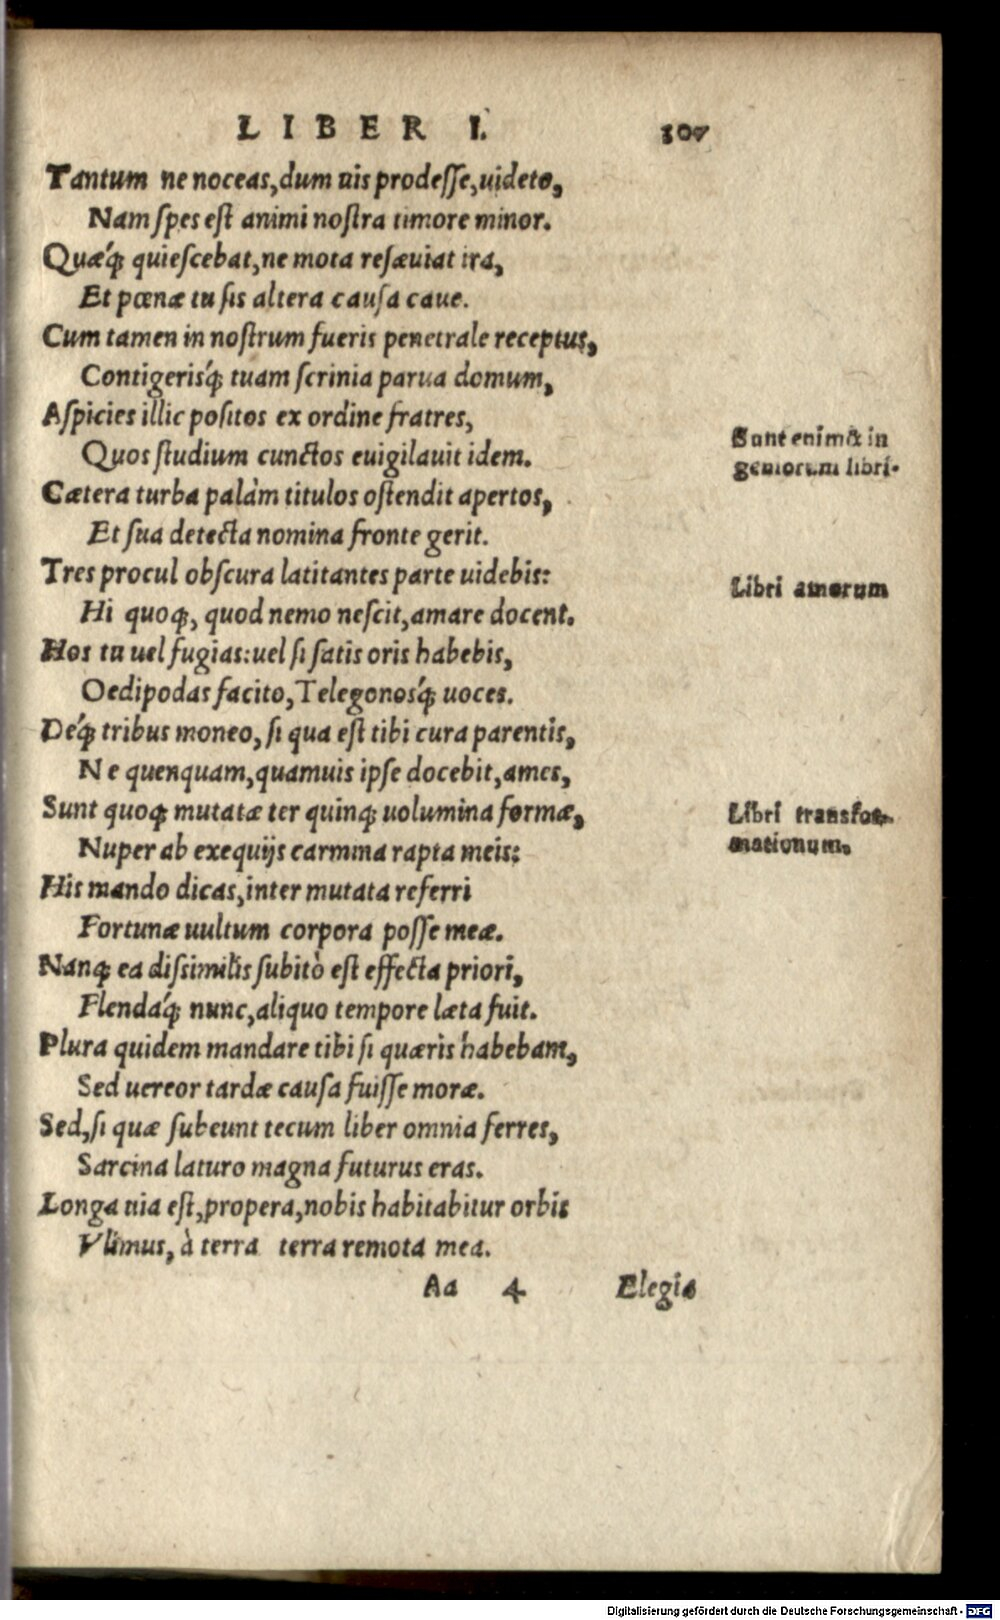 LIBER I. 307
Tantum ne noceas, dum uis prodesse, uideto,
Nam spes est animi nostra timore minor.
Quæq́; quiescebat, ne mota resæuiat ira,
Et pœnæ tu sis altera causa caue.
Cum tamen in nostrum fueris penetrale receptus,
Contigerisq́; tuam scrinia parua domum,
Aspicies illic positos ex ordine fratres,
Quos studium cunctos euigilauit idem.
Sunt enim & in
geniorum libri.
Cætera turba palàm titulos ostendit apertos,
Et sua detecta nomina fronte gerit.
Tres procul obscura latitantes parte uidebis:
Libri amorum
Hi quoq;, quod nemo nescit, amare docent.
Hos tu uel fugias: uel si satis oris habebis,
Oedipodas facito, Telegonosq́; uoces.
Deq́; tribus moneo, si qua est tibi cura parentis,
Ne quenquam, quamuis ipse docebit, ames,
Sunt quoq; mutatæ ter quinq; uolumina formæ,
Nuper ab exequijs carmina rapta meis:
Libri transfor-
mationum.
His mando dicas, inter mutata referri
Fortunæ uultum corpora posse meæ.
Nanq; ea dissimilis subitò est effecta priori,
Flendaq́; nunc, aliquo tempore læta fuit.
Plura quidem mandare tibi si quæris habebam,
Sed uereor tardæ causa fuisse moræ.
Sed, si quæ subeunt tecum liber omnia ferres,
Sarcina laturo magna futurus eras.
Longa uia est, propera, nobis habitabitur orbis
Vltimus, à terra terra remota mea.
Aa 4 Elegia
Digitalisierung gefördert durch die Deutsche Forschungsgemeinschaft - DFG